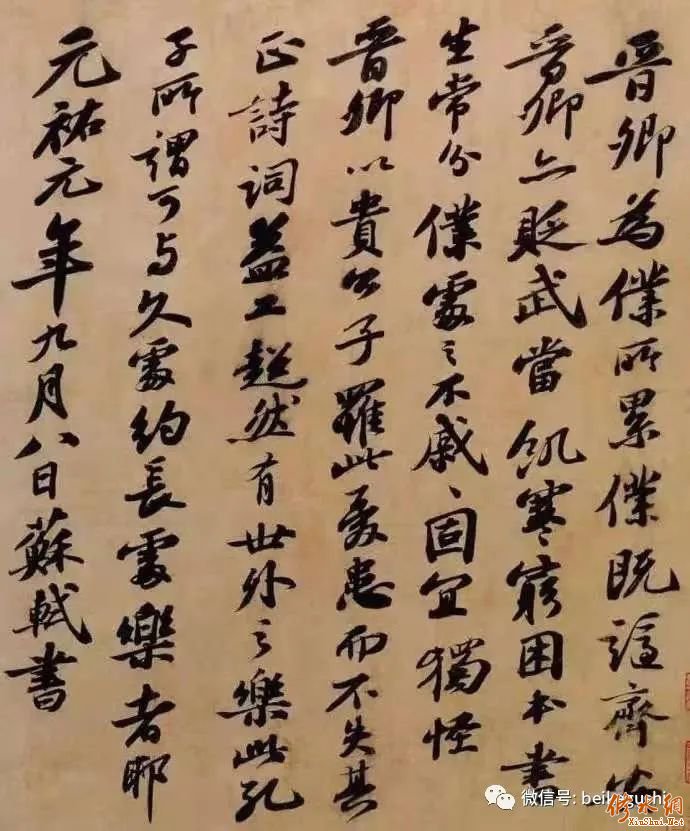 晉卿為僕所累僕既謫齊安
晉卿亦貶武當飢寒窮困本書
生常分僕處之不戚〻固宜獨怪
晉卿以貴公子罹此憂患而不失其
正詩詞益工超然有世外之樂此孔
子所謂可与久處約長處樂者耶
元祐元年九月八日蘇軾書
微信号:
修水網